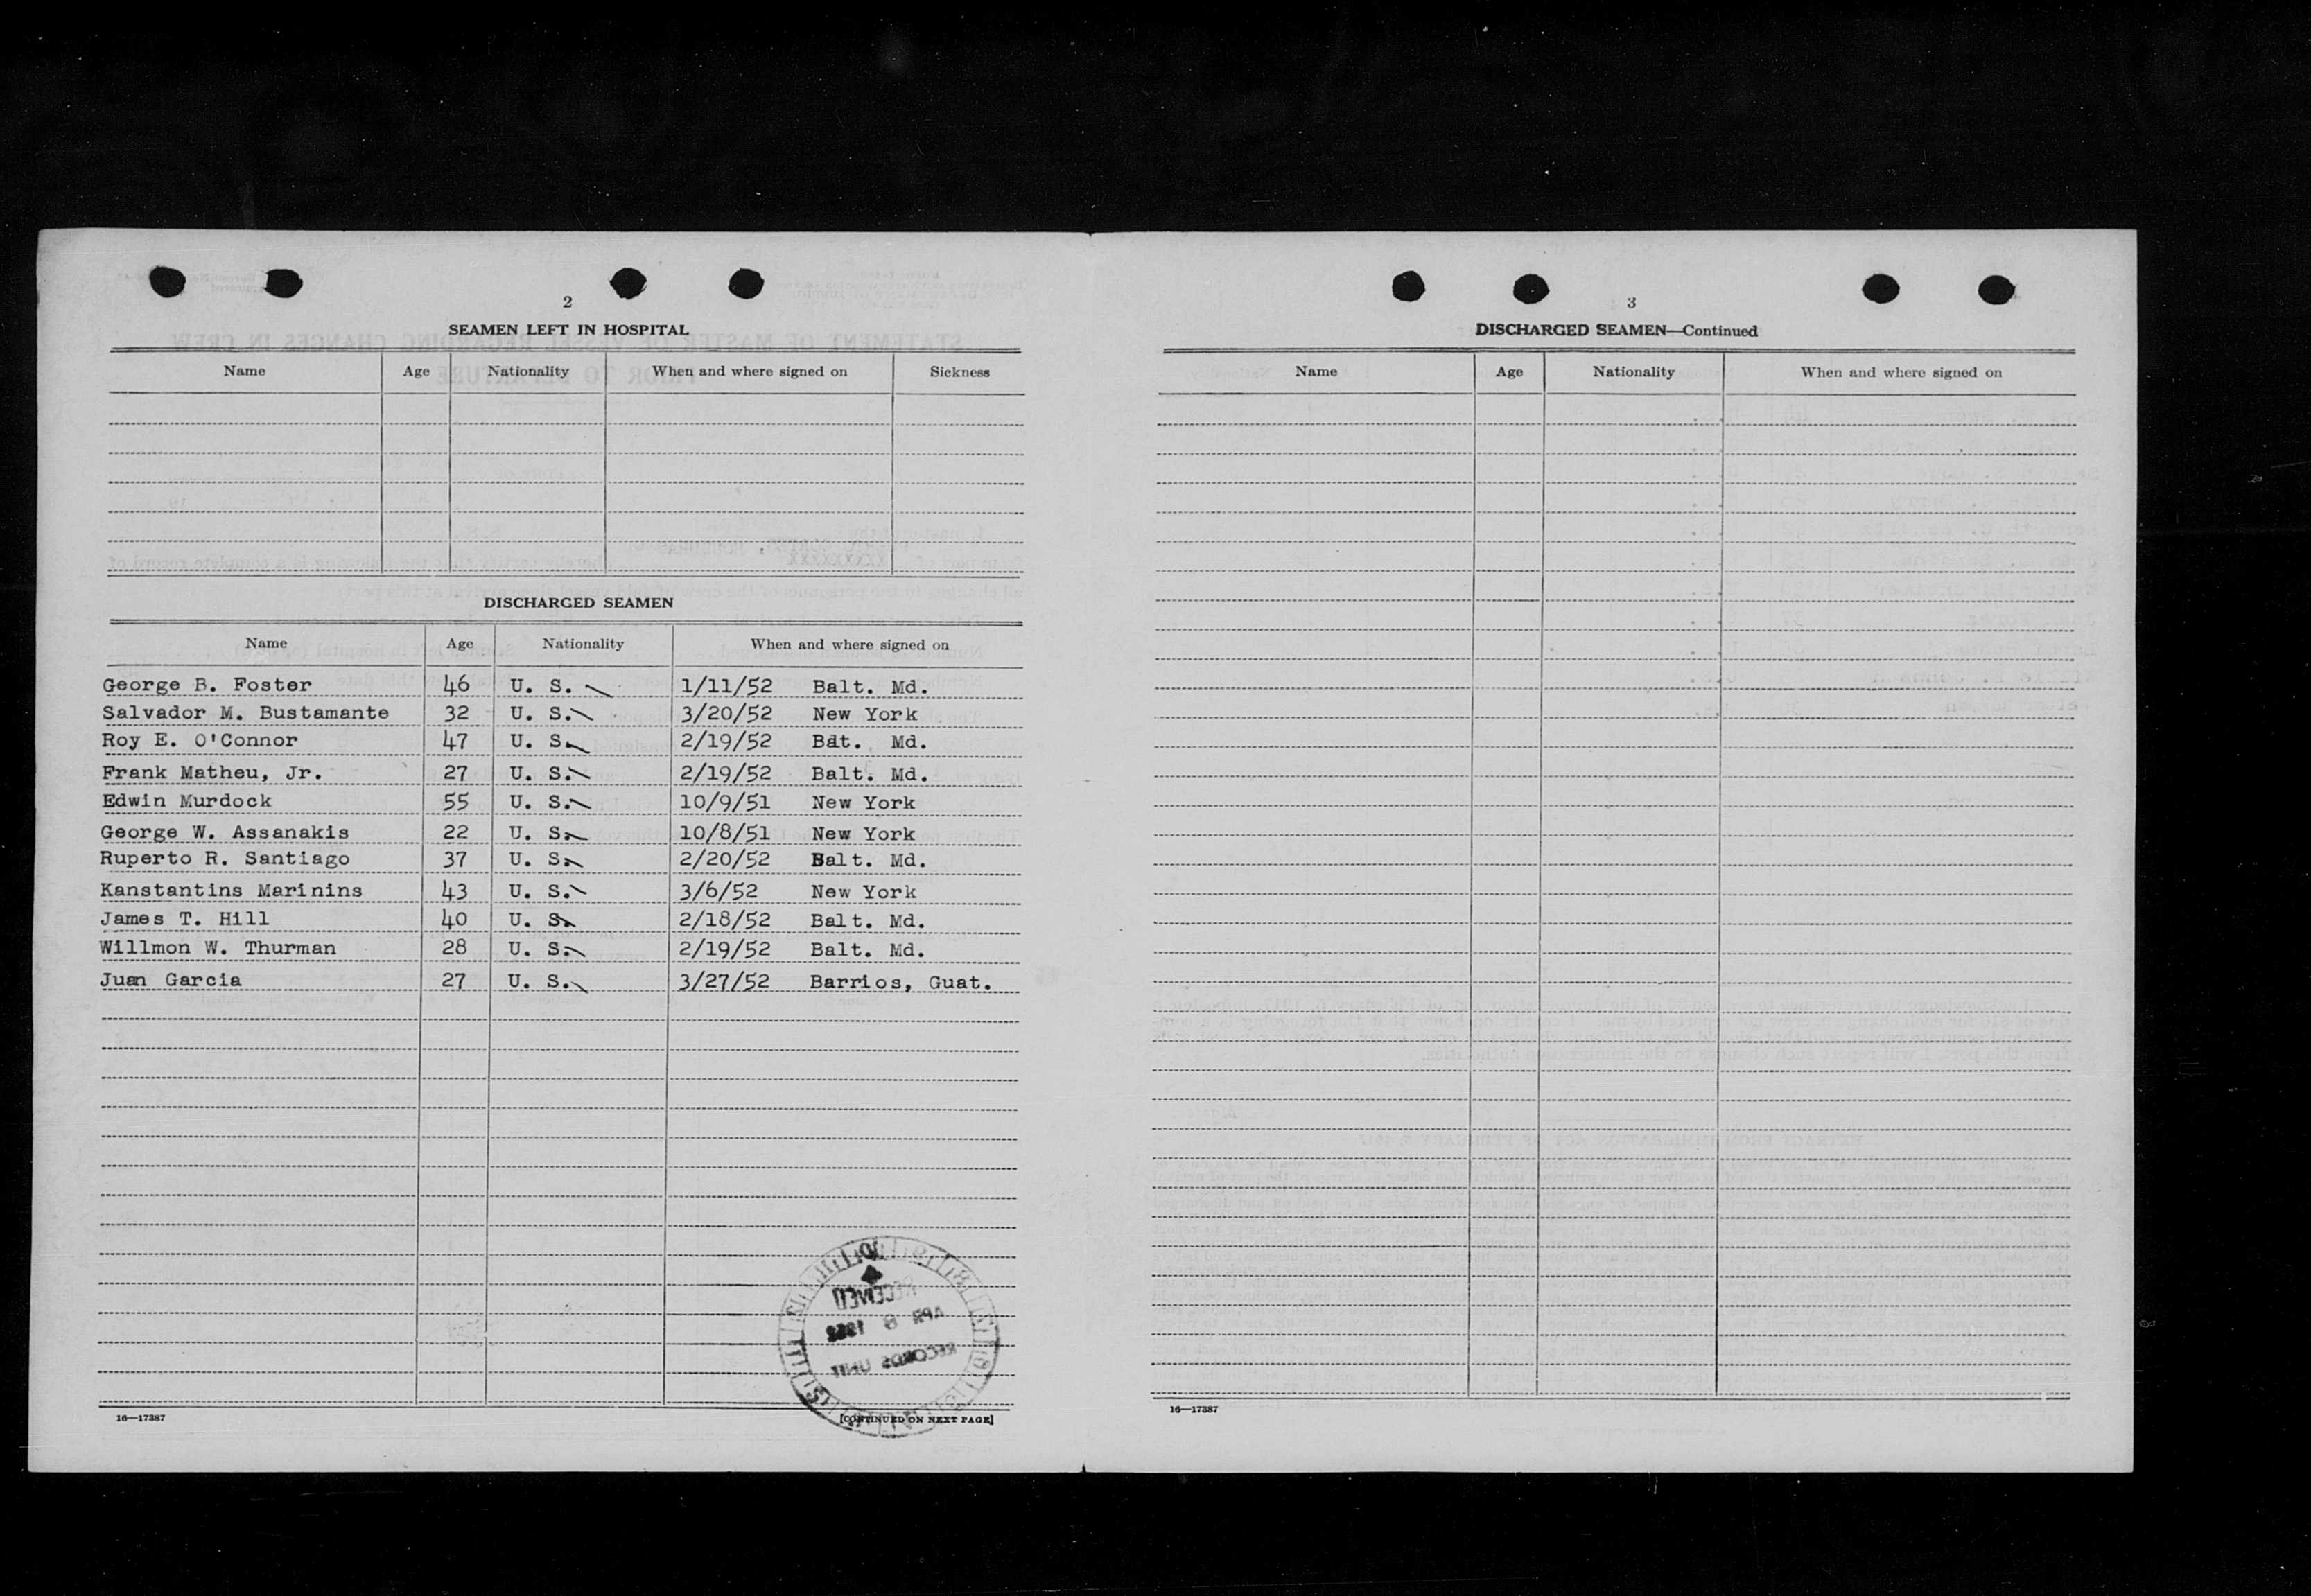 2
SEAMEN LEFT IN HOSPITAL
Name Age Nationality When and where signed on Sickness
DISCHARGED SEAMEN
Name Age Nationality When and where signed on
George B. Foster 46 U. S. 1/11/52 Balt. Md.
Salvador M. Bustamante 32 U. S. 3/20/52 New York
Roy E. O'Connor 47 U. S. 2/19/52 Bat. Md.
Frank Matheu, Jr. 27 U. S. 2/19/52 Balt. Md.
Edwin Murdock 55 U. S. 10/9/51 New York
George W. Assanakis 22 U. S. 10/8/51 New York
Ruperto R. Santiago 37 U. S. 2/20/52 Balt. Md.
Kanstantins Marinins 43 U. S. 3/6/52 New York
James T. Hill 40 U. S. 2/18/52 Balt. Md.
Willmon W. Thurman 28 U. S. 2/19/52 Balt. Md.
Juan Garcia 27 U. S. 3/27/52 Barrios, Guat.
RECEIVED
APR 8
RECORDS
16—17387 [CONTINUED ON NEXT PAGE]
3
DISCHARGED SEAMEN—Continued
Name Age Nationality When and where signed on
16—17387